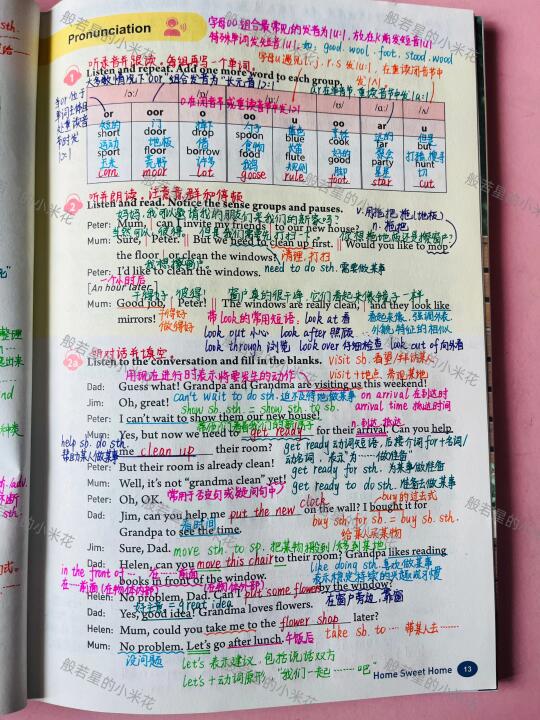 Pronunciation
字母OO组合最常见的发音为|u:|,放在k前发短音|u|
特殊单词发短音|u|.如:good.wool.foot.stood.wood
听录音并跟读。每组再写一个单词。
1 Listen and repeat. Add one more word to each group.
大多数情况下"or"组合发音为"长元音"|ɔ:|
ar在重读音节中发|a:|
/ɔ:/ /ɒ/ /u:/ /ʊ/ /ɑ:/ /ʌ/
or oor o oo u oo ar u
短的 门 勺子 蓝色 烹饪 远的 但是
short door drop spoon blue cook far but
运动 地板 借 食物 好的 聚会
sport floor borrow food flute good party hunt
玉米 许多 鹅 规则 脚 星 切
corn moor lot goose rule foot star cut
2 听并朗读,注意意群和停顿
Listen and read. Notice the sense groups and pauses.
Peter: Mum, | can I invite my friends | to our new house?
Mum: Sure, | Peter. || But we need to clean up first. || Would you like to mop
the floor | or clean the windows?
清理,打扫
Peter: I'd like to clean the windows. need to do sth.需要做某事
一个小时后
[An hour later.]
窗户真的很干净,它们看起来像镜子一样
Mum: Good job, | Peter! || The windows are really clean, | and they look like
mirrors!
干得好
做得好
带look的常用短语: look at看
look out小心 look after照顾
look through浏览 look over仔细检查 look out of向外看
2a 听对话并填空。
Listen to the conversation and fill in the blanks.
visit sb.看望/拜访某人
visit+地点
用现在进行时表示将要发生的动作
Dad: Guess what! Grandpa and Grandma are visiting us this weekend!
Jim: Oh, great!
can't wait to do sth.迫不及待地做某事
on arrival在到达时
show sb. sth. = show sth. to sb.
arrival time抵达时间
Peter: I can't wait to show them our new house!
n.到达,抵达
Mum: Yes, but now we need to get ready for their arrival. Can you help
me clean up their room?
help sb. do sth.
帮助某人做某事
get ready动词短语,后接介词for+名词/
动名词,表示"为……做准备"
get ready for sth.为某事做准备
Peter: But their room is already clean!
Mum: Well, it's not "grandma clean" yet!
get ready to do sth.准备去做某事
Peter: Oh, OK.
常用于否定句或疑问句中
buy的过去式
Dad: Jim, can you help me put the new clock on the wall? I bought it for
Grandpa to see the time.
看时间
buy sth. for sb. = buy sb. sth.
给某人买某物
Jim: Sure, Dad.
move sth. to sp.把某物搬到/移到某地
Dad: Helen, can you move this chair to their room? Grandpa likes reading
books in front of the window.
in the front of……在……前面
在……前面(在物体内部)
(在物体外部)
like doing sth.喜欢做某事
表示稳定持续的兴趣或习惯
Helen: No problem, Dad. Can I put some flowers by the window?
好主意=great idea
在窗户旁边,靠窗
Dad: Yes, good idea! Grandma loves flowers.
Helen: Mum, could you take me to the flower shop later?
Mum: No problem. Let's go after lunch.
午饭后
take sb. to……带某人去……
没问题
let's表示建议,包括说话双方
let's+动词原形,"我们一起……吧"
Home Sweet Home 13
般若星的小米花